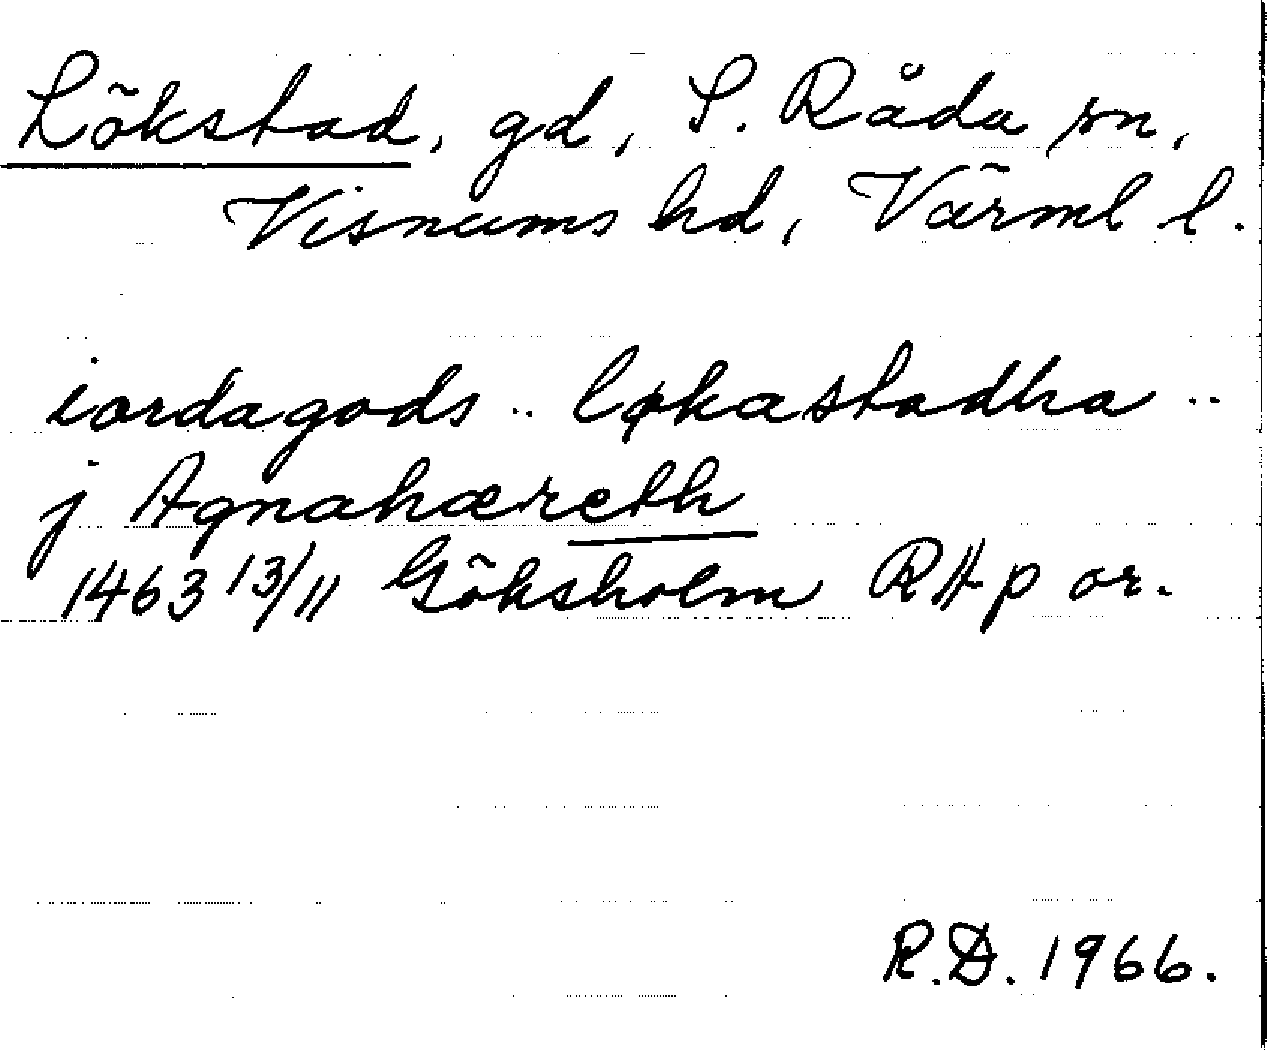 Lökstad, gd, S. Råda sn,
Visnums hd, Värml l.
iordagods .. løkastadha ..
j Agnahæreth
1463 13/11 Göksholm RAp or.
R.D. 1966.